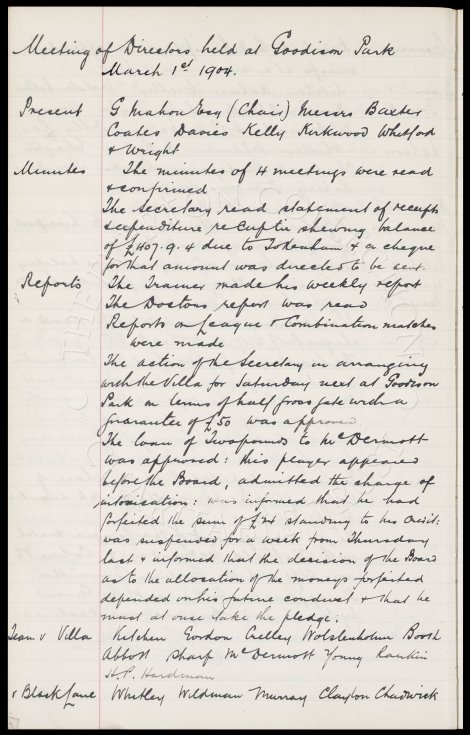 Meeting of Directors held at Goodison Park
March 1st 1904.
Present G Mahon Esq (Chair) Messrs Baxter
Coates Davies Kelly Kirkwood Whitford
& Wright
Minutes The minutes of 4 meetings were read
& confirmed
The Secretary read statement of receipts
& expenditure re Cuptie shewing balance
of £407.9.4 due to Tottenham & a cheque
for that amount was directed to be sent.
Reports The Trainer made his weekly report
The Doctors report was read
Reports on League & Combination matches
were made
The action of the Secretary in arranging
with the Villa for Saturday next at Goodison
Park on terms of half gross gate with a
guarantee of £50 was approved
The loan of Two pounds to McDermott
was approved: this player appeared
before the Board, admitted the charge of
intoxication: was informed that he had
forfeited the sum of £24 standing to his credit:
was suspended for a week from Thursday
last & informed that the decision of the Board
as to the allocation of the moneys forfeited
depended on his future conduct & that he
must at once take the pledge:
Team v Villa Kitchen Gordon Crelley Wolstenholm Booth
Abbott Sharp McDermott Young Rankin
H.P. Hardman
v Black Lane Whitley Wildman Murray Clayton Chadwick